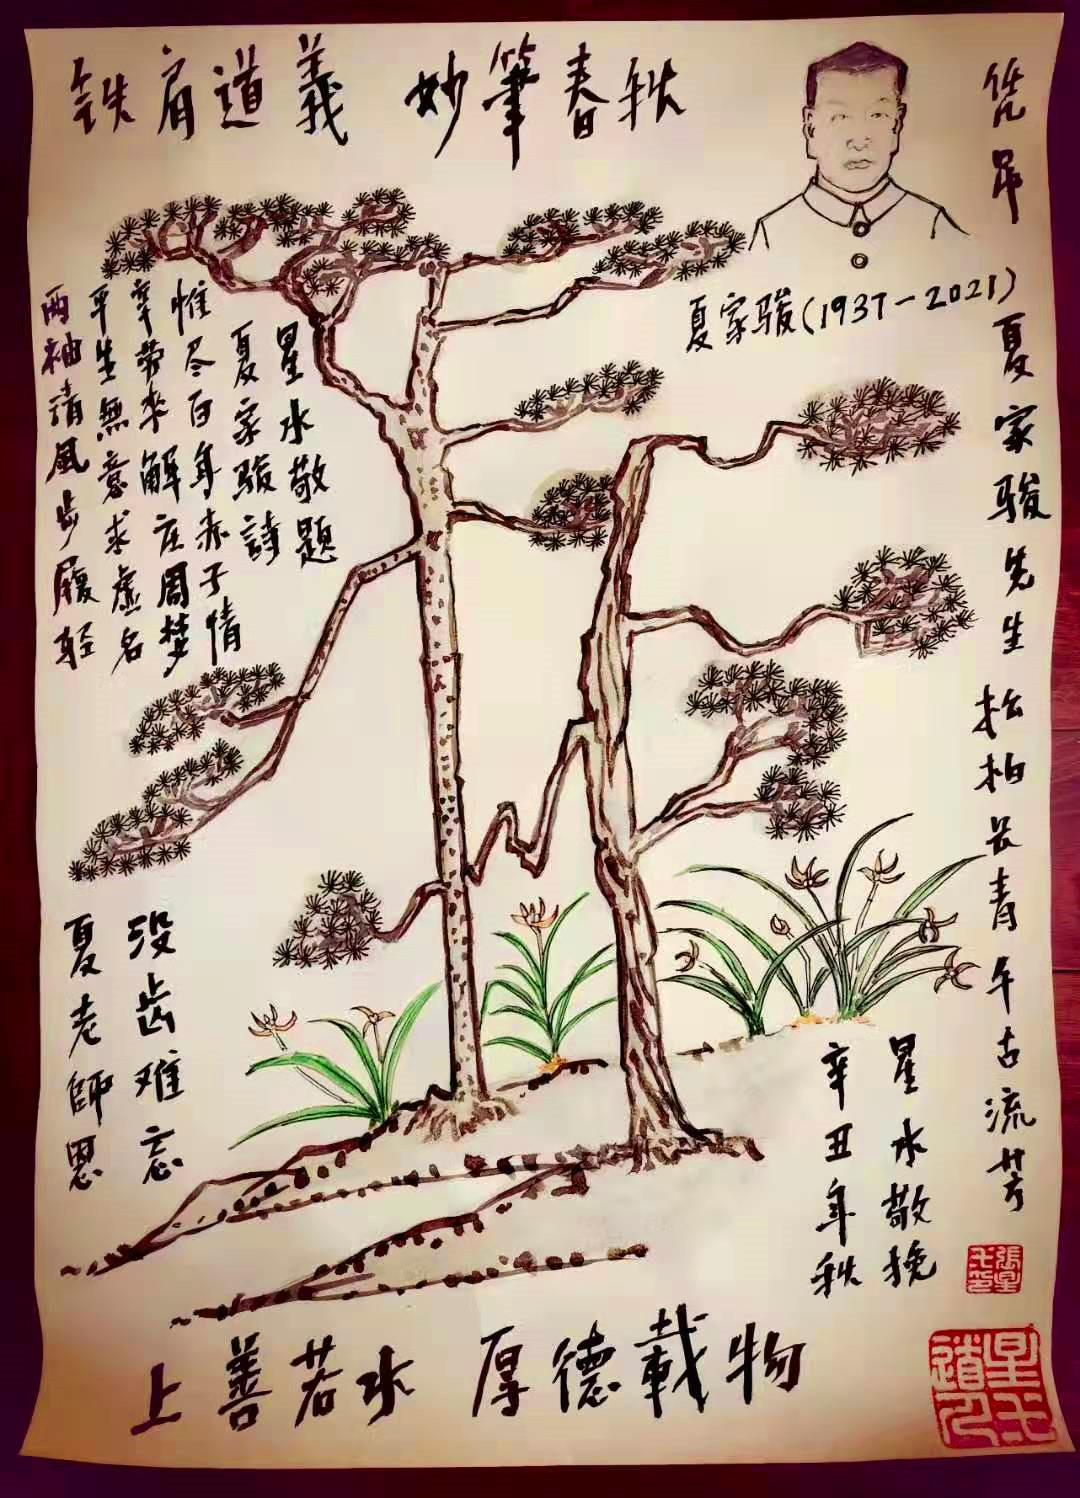 铁肩道義 妙筆春秋
凭吊夏家骏先生 松柏长青 千古流芳
夏家骏(1937-2021)
两袖清風步履轻
平生無意求虚名
劳来解庄周梦
惟尽百年赤子情
夏家骏詩
星水敬题
夏老師恩
没齿难忘
辛丑年秋
星水敬挽
上善若水 厚德載物